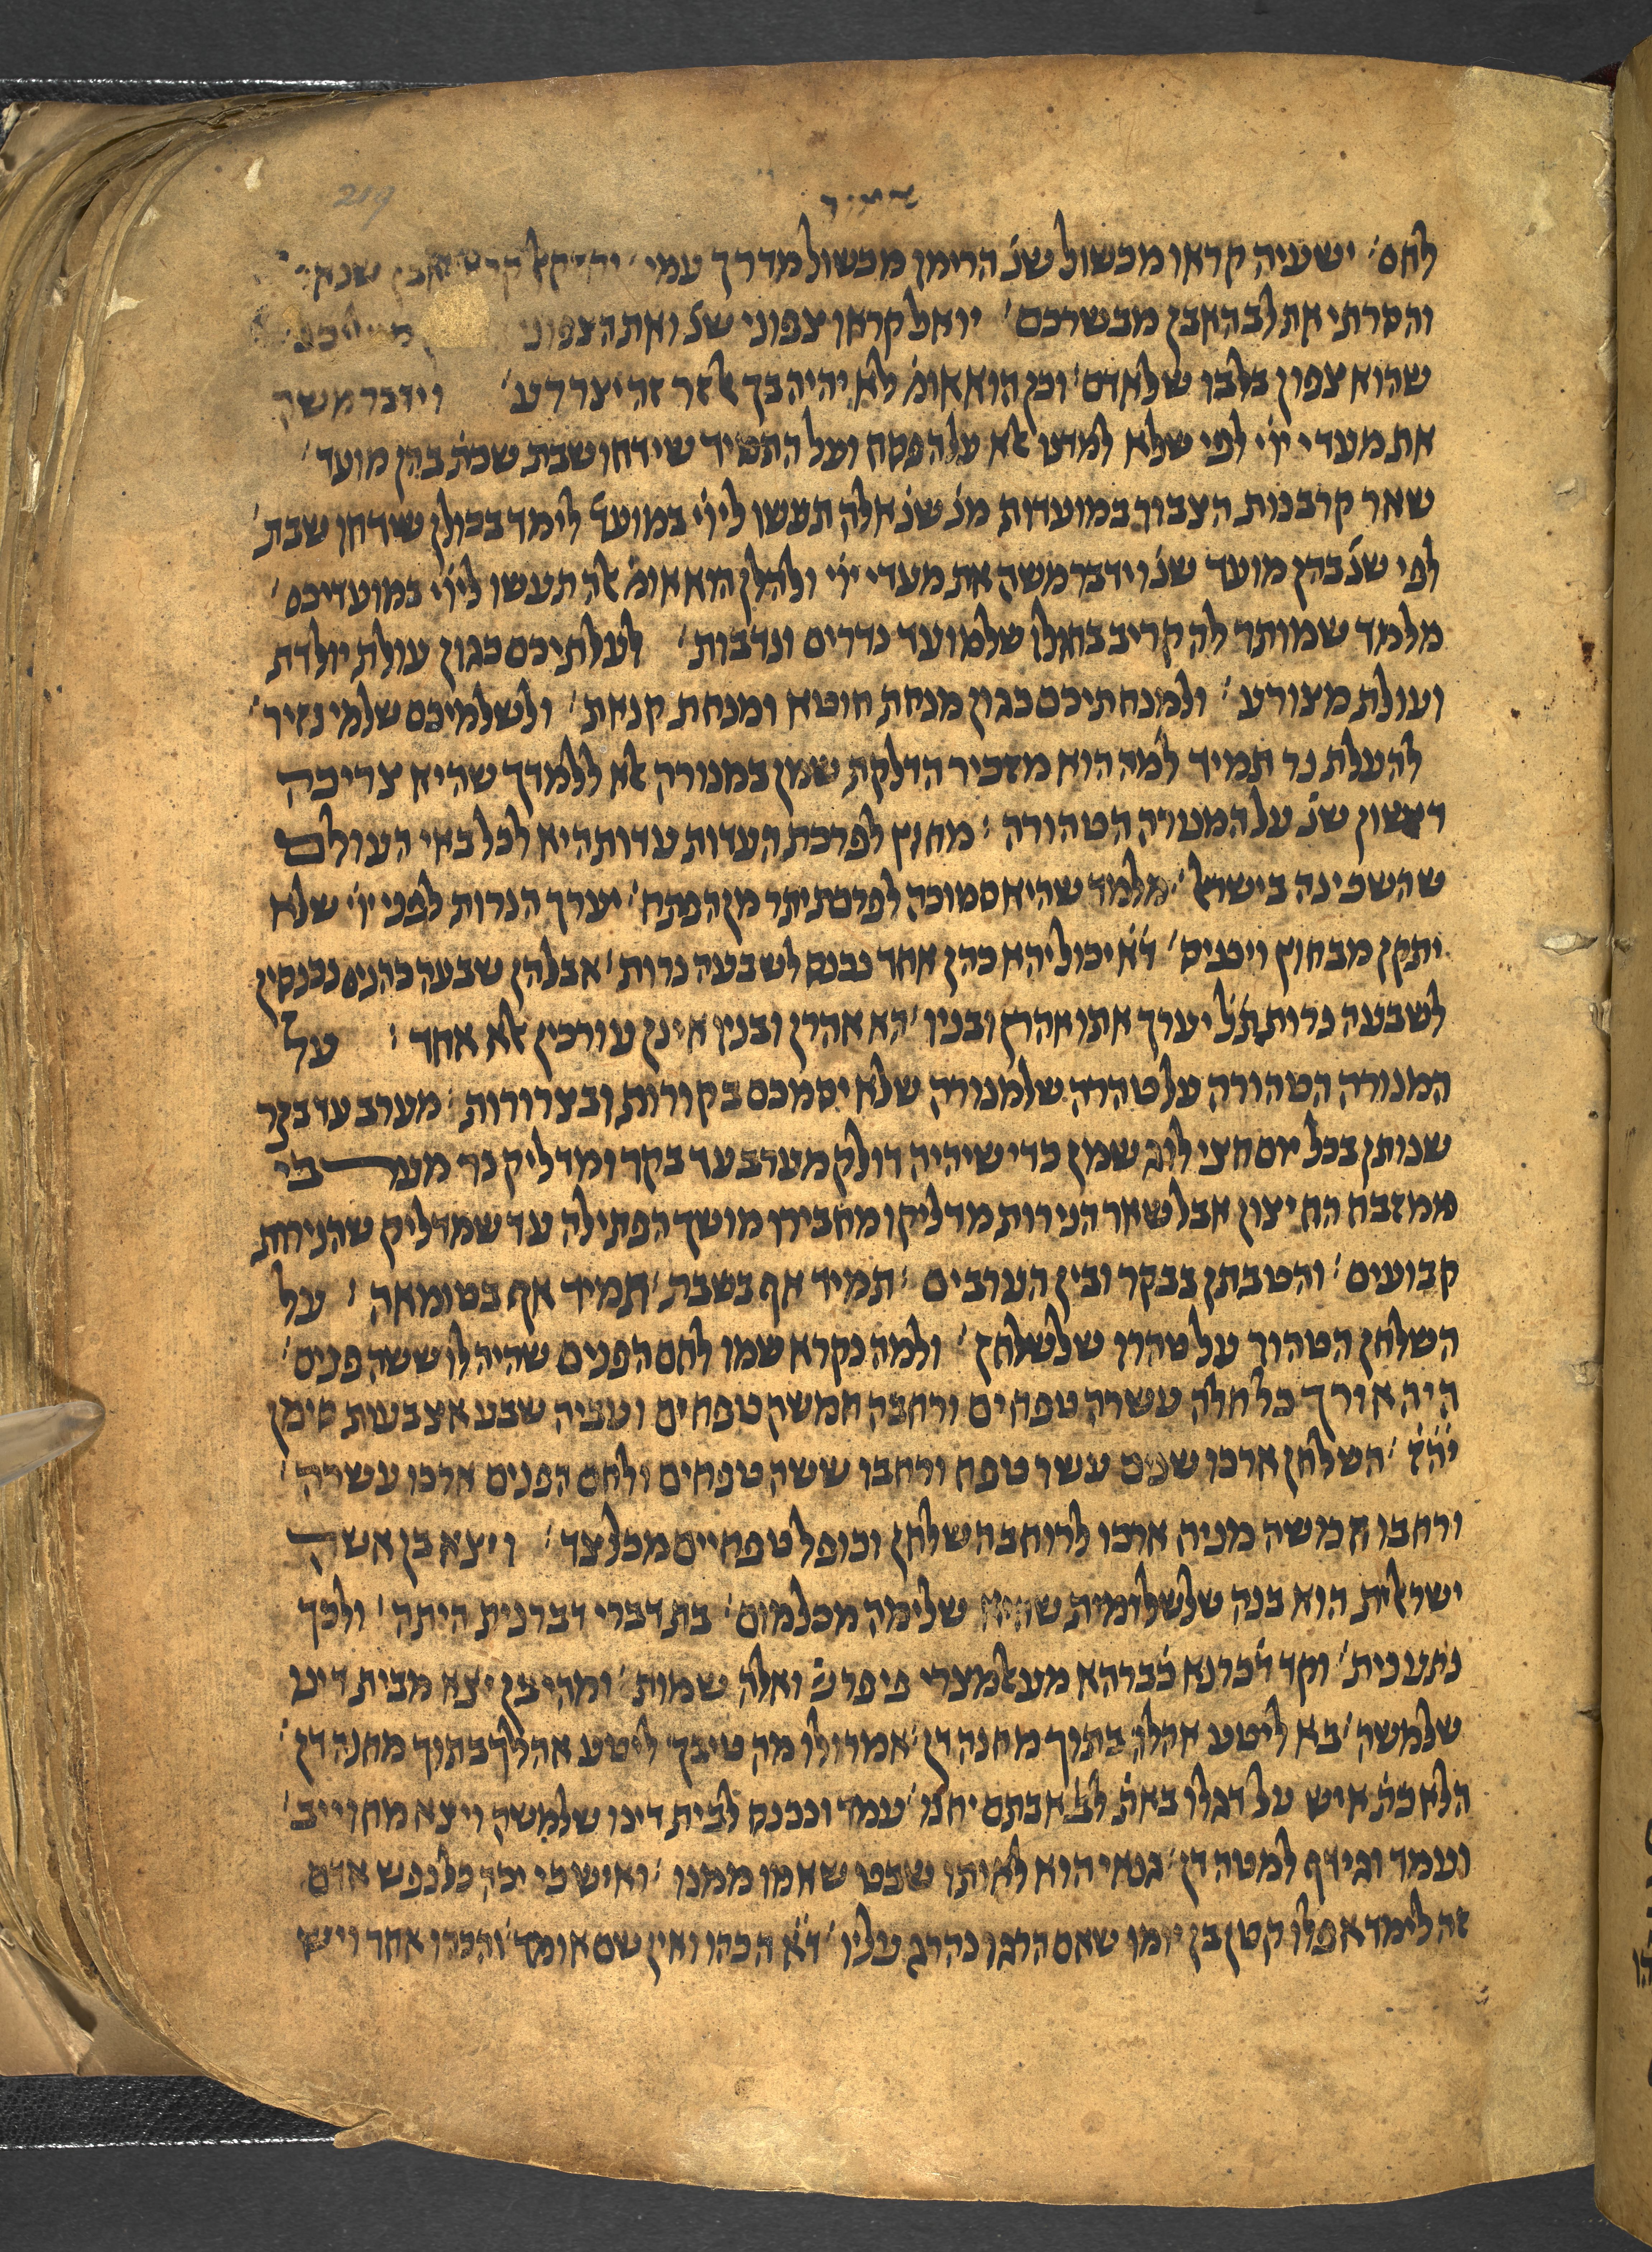 אמור
לחם׳ ישעיה קראו מכשול שנ׳ הרימו מכשול מדרך עמי׳ יחזקאל אבן שנא׳
והסרתי את לב האבן מבשרכם׳ יואל קראו צפוני שנ׳ ואת הצפוני
שהוא צפון בלבו שלאדם׳ וכן הוא אומ׳ לא יהיה בך אל זר זה יצר רע׳ וידבר משה
את מעדי ייי לפי שלא למדנו אלא על הפסח ועל התמיד שידחו שבת שכת׳ בהן מועד׳
שאר קרבנות הצבור במועדות מנ׳ שנ׳ אלה תעשו לייי במועד׳ לימד בכולן שידחו שבת׳
לפי שנ׳ בהן מועד שנ׳ וידבר משה את מעדי ייי ולהלן הוא אומ׳ אלה תעשו לייי במועדיכם׳
מלמד שמותר להקריב בחולו שלמועד נדרים ונדבות׳ לעלתיכם כגון עולת יולדת
ועולת מצורע׳ ולמנחתיכם כגון מנחת חוטא ומנחת קנאת׳ ולשלמיכם שלמי נזיר׳
להעלת נר תמיד למה הוא מזכיר הדלקת שמן במנורה אלא ללמדך שהיא צריכה
ראשון שנ׳ על המנורה הטהורה׃ מחוץ לפרכת העדות עדות היא לכל באי העולם
שהשכינה בישראל׳ מלמד שהיא סמוכה לפרכת יתר מן הפתח׳ יערך הנרות לפני ייי שלא
יתקן מבחוץ ויכניס׳ ד׳א׳ יכול יהא כהן אחד נכנס לשבעה נרות׳ אבל הן שבעה כהנים נכנסין
לשבעה נרות ת׳ל׳ יערך אתו אהרן ובניו׳ הא אהרן ובניו אינן עורכין אלא אחד׃ על
המנורה הטהורה על טהרה שלמנורה שלא יסמכם בקורות ובצרורות׃ מערב עד בקר
שנותן בכל יום חצי לוג שמן כדי שיהיה דולק מערב עד בקר ומדליק נר מערבי
ממזבח החיצון אבל שאר הנירות מדליקו מחבירו מושך הפתילה עד שמדליק שהנירות
קבועים׳ והטבתן בבקר ובין הערבים׃ תמיד אף בשבת׳ תמיד אף בטומאה׳ על
השלחן הטהור על טהרו שלשלחן׳ ולמה נקרא שמו לחם הפנים שהיה לו ששה פנים׳
היה אורך כל חלה עשרה טפחים ורחבה חמשה טפחים ועביה שבע אצבעות סימן
יה׳ז׳ השלחן ארכו שנים עשר טפח ורחבו ששה טפחים ולחם הפנים ארכו עשרה׳
ורחבו חמשה מניח ארכו לרוחבה שלחן וכופל טפחיים מכל צד׳ ויצא בן אשה
ישראלית הוא בנה שלשלומית שהיא שלימה מכל מום׳ בת דברי דברנית היתה׳ ולכך
נתענית׳ וקד דכרנא כברהא מע אלמצרי פי פרש׳ ואלה שמות׳ ומהיכן יצא מבית דינו
שלמשה׳ בא ליטע אהלו בתוך מחנה דן׳ אמרו לו מה טיבך ליטע אהלך בתוך מחנה דן׳
הלא כת׳ איש על דגלו באת׳ לבית אבתם יחנו׳ עמד ונכנס לבית דינו שלמשה ויצא מחוייב׳
ועמד וגידף למטה דן׳ גנאי הוא לאותו שבט שאמו ממנו׳ ואיש כי יכה כל נפש אדם
זה לימד אפלו קטן בן יומו שאם הרגו נהרג עליו׳ ד׳א׳ הכהו ואין שם אומד׳ והכהו אחר ויש